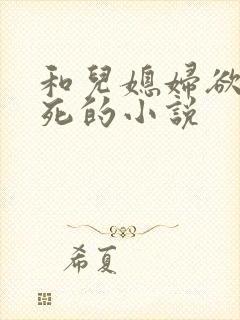 和兒媳婦欲
死的小說
希夏